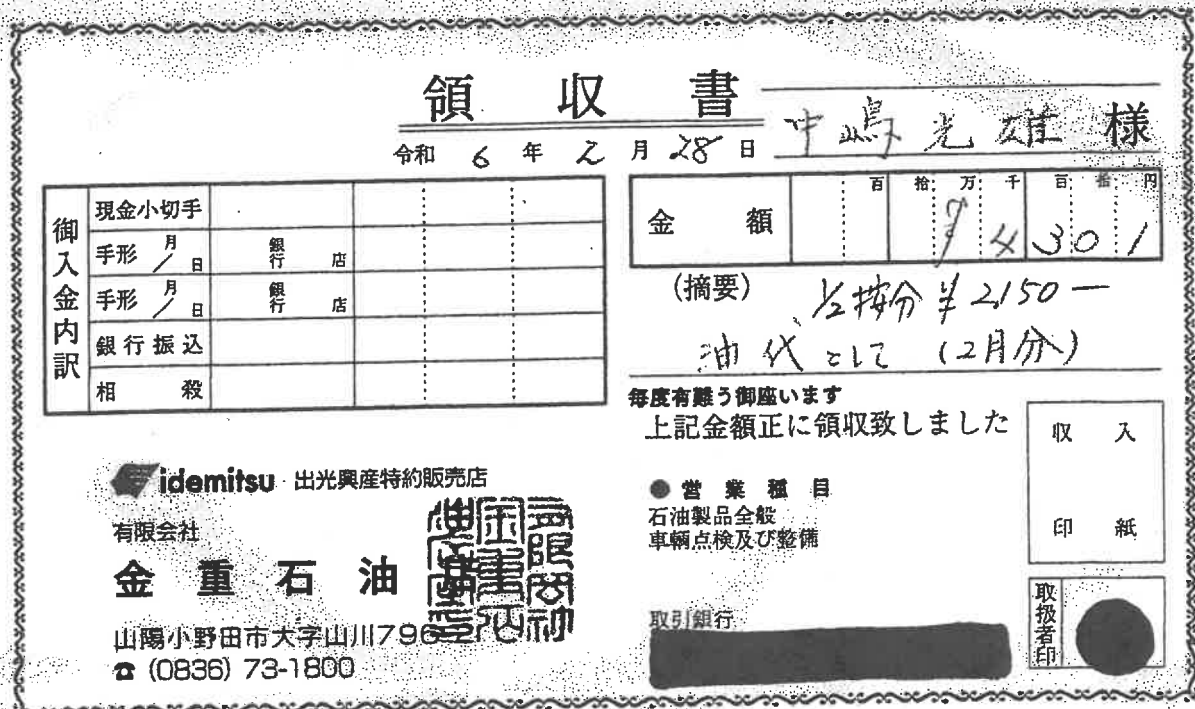 領収書
中嶋光雄 様
令和 6 年 2 月 28 日
御入金内訳
現金小切手
手形 月/日 銀行 店
手形 月/日 銀行 店
銀行振込
相殺
金額
百 拾 万 千 百 拾 円
¥4301
(摘要)
1/2按分 ¥2,150ー
油代として (2月分)
毎度有難う御座います
上記金額正に領収致しました
収入印紙
idemitsu 出光興産特約販売店
有限会社
金重石油
山陽小野田市大字山川796
☎ (0836) 73-1800
● 営業種目
石油製品全般
車輌点検及び整備
取引銀行
取扱者印